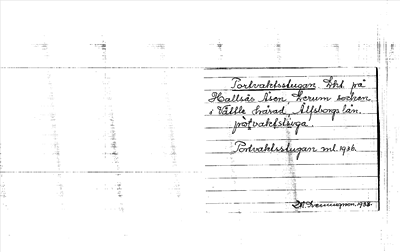 Portvaktsstugan, lht. på
Hallsås Åsen, Lerum socken.
i Vättle härad, Älfsborgs län.
pòrtvaktstùga.
Portvaktsstugan ml. 1936.
1938.